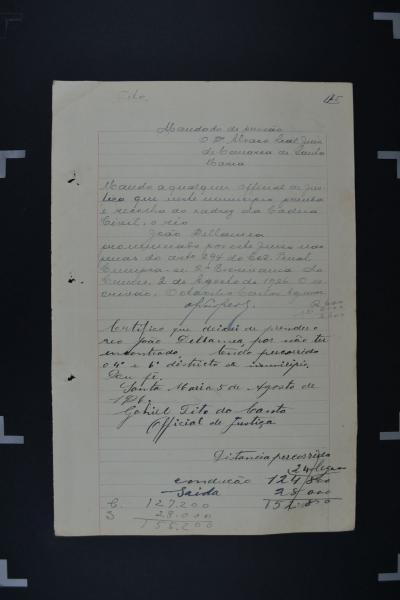 Tito.
Mandado de prisão
O Dr Alvaro Leal Juiz
de Comarca de Santa
Maria
Mando a qualquer official de jus-
tiça que neste municipio prenda
e recolha ao xadrez da Cadeia
Civil, o réo
João Dellamea
pronunciado por este Juizo nas
penas do art 294 do Cod. Penal
Cumpra-se. S. M.
2 de Agosto de 1926. O es-
crivão, Octacilio Carlos
Certifico que deixei de prender o
réo João Dellamea, por não ter
encontrado, tendo percorrido
o 4º e 6º districto do municipio,
Dou fé.
Santa Maria 5 de Agosto de
1926.
Gabriel Tito do Canto
Official de Justiça
Distancia percorrida
24 leguas
condução 124,800
Saida 28,000
C. 127.200
S 28.000
155.200